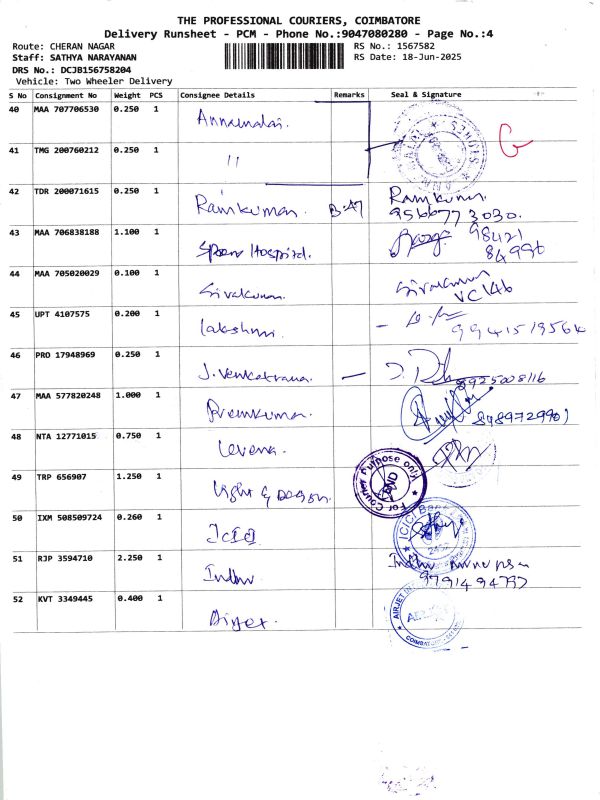 THE PROFESSIONAL COURIERS, COIMBATORE
Delivery Runsheet - PCM - Phone No.:9047080280 - Page No.:4
Route: CHERAN NAGAR RS No.: 1567582
Staff: SATHYA NARAYANAN RS Date: 18-Jun-2025
DRS No.: DCJB156758204
Vehicle: Two Wheeler Delivery
S No Consignment No Weight PCS Consignee Details Remarks Seal & Signature
40 MAA 707706530 0.250 1 Annamalai.
41 TMG 200760212 0.250 1 11 G
42 TDR 200071615 0.250 1 Ramkumar. B-47 Ramkumar.
956677 3030.
43 MAA 706838188 1.100 1 Hospital. 98421
84996
44 MAA 705020029 0.100 1 Sivakumar. Sivakumar
45 UPT 4107575 0.200 1 Lakshmi.
46 PRO 17948969 0.250 1 J. Venkatraman. 8925008116
47 MAA 577820248 1.000 1 Premkumar. 8489729901
48 NTA 12771015 0.750 1
49 TRP 656907 1.250 1 Light & Design. For Courier Purpose only
50 IXM 508509724 0.260 1 ICICI ICICI Bank
51 RJP 3594710 2.250 1 Indhu Indhu
9791494797
52 KVT 3349445 0.400 1 Airjet. AIRJET
COIMBATORE